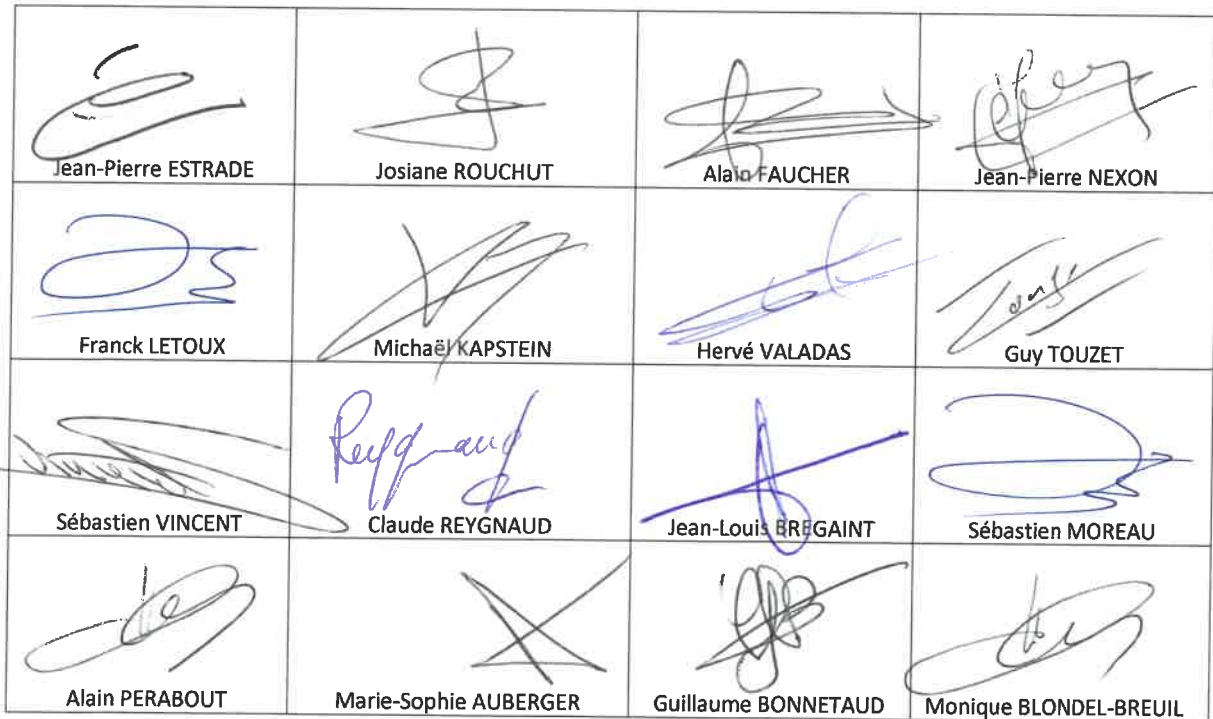 Jean-Pierre ESTRADE
Josiane ROUCHUT
Alain FAUCHER
Jean-Pierre NEXON
Franck LETOUX
Michaël KAPSTEIN
Hervé VALADAS
Guy TOUZET
Sébastien VINCENT
Reygnaud
Claude REYGNAUD
Jean-Louis BREGAINT
Sébastien MOREAU
Alain PERABOUT
Marie-Sophie AUBERGER
Guillaume BONNETAUD
Monique BLONDEL-BREUIL